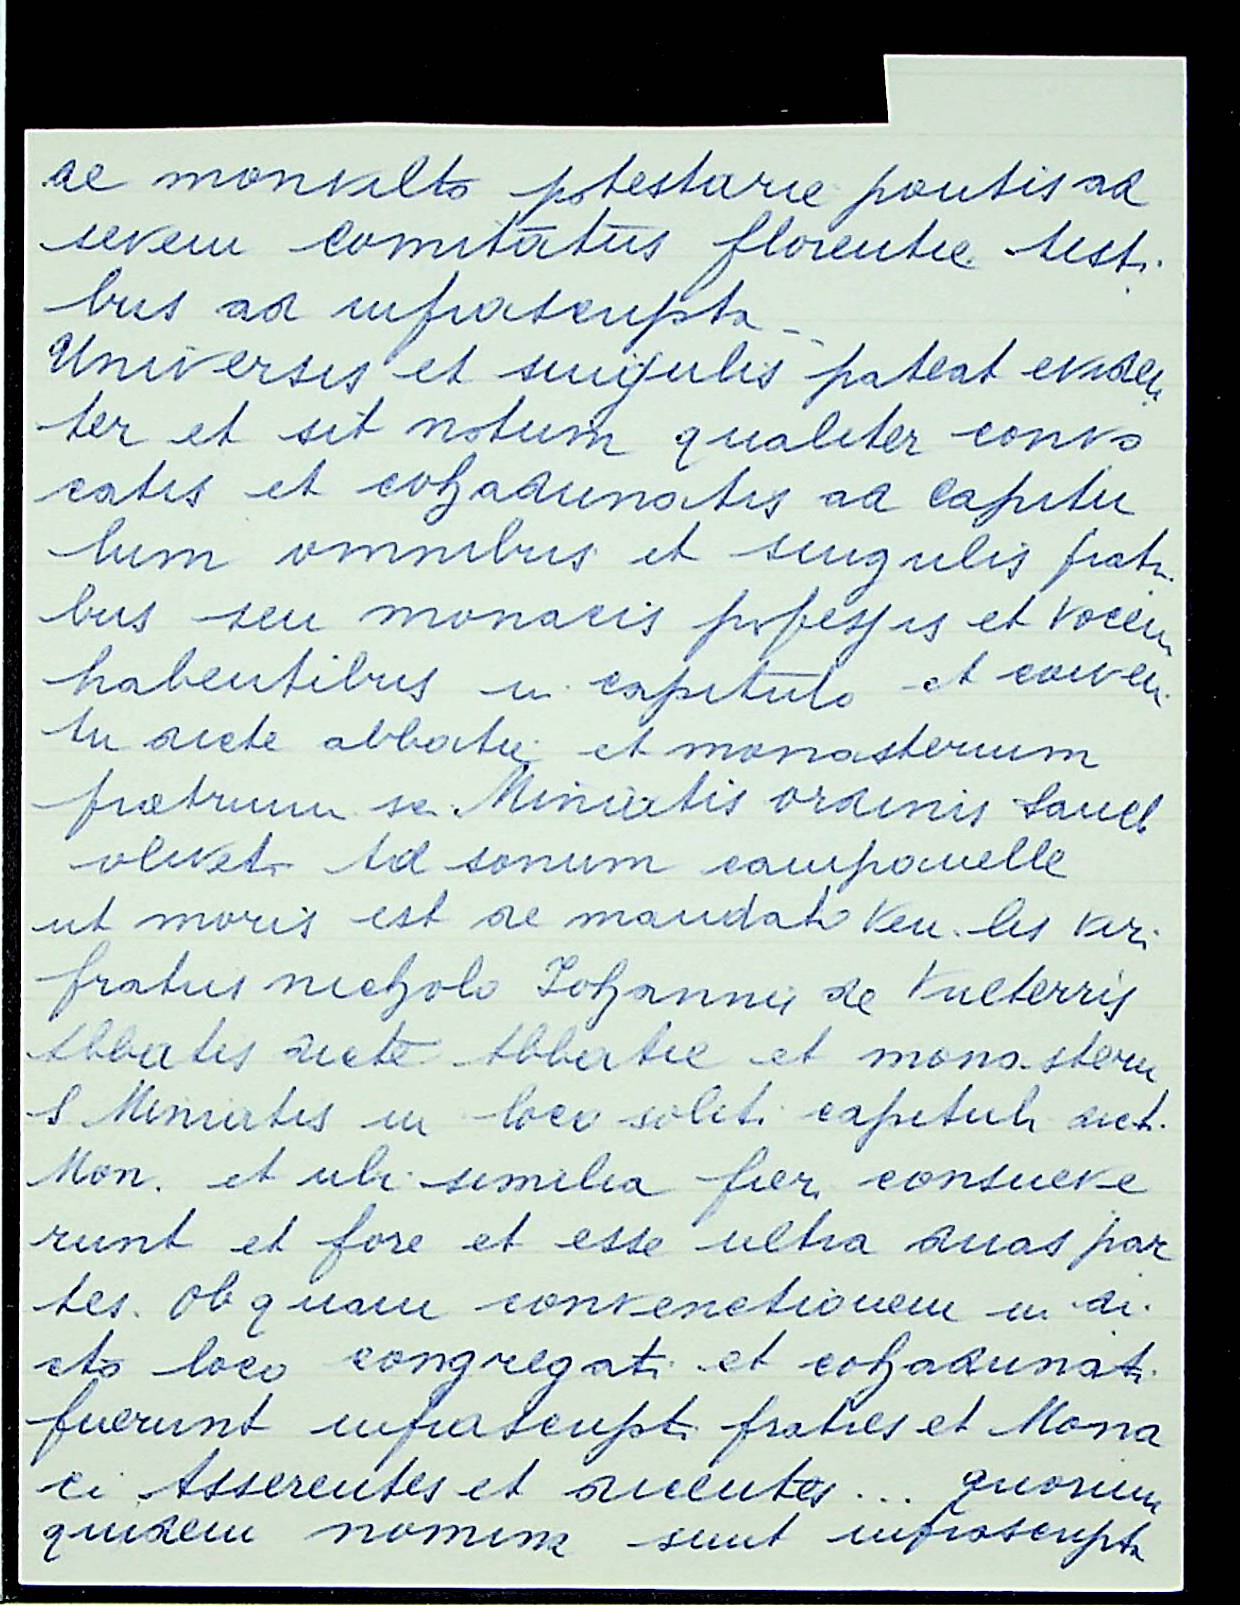 de monsulto potestarie pontis ad
sevem comitatus florentie testi
bus ad infrascripta -
Universis et singulis pateat eviden
ter et sit notum qualiter convo
catis et cohadunatis ad capitu
lum omnibus et singulis fratri
bus seu monacis professis et vocem
habentibus in capitulo et conven
tu dicte abbatie et monasterium
fratrum sci Miniatis ordinis Sancti
oliveti Ad sonum campanelle
ut moris est de mandato Ven. lis viri
fratris nicholo Johannis de Vulterris
Abbatis dicte Abbatie et monasterii
S Miniatis in loco soliti capituli dicti
Mon. et ubi similia fieri consueve
runt et fore et esse ultra duas par
tes. Ob quam convenctionem in di
cto loco congregati et cohadunati
fuerunt infrascripti fratres et Mona
ci Asserentes et dicentes ... quorum
quidem nomina sunt infrascripta